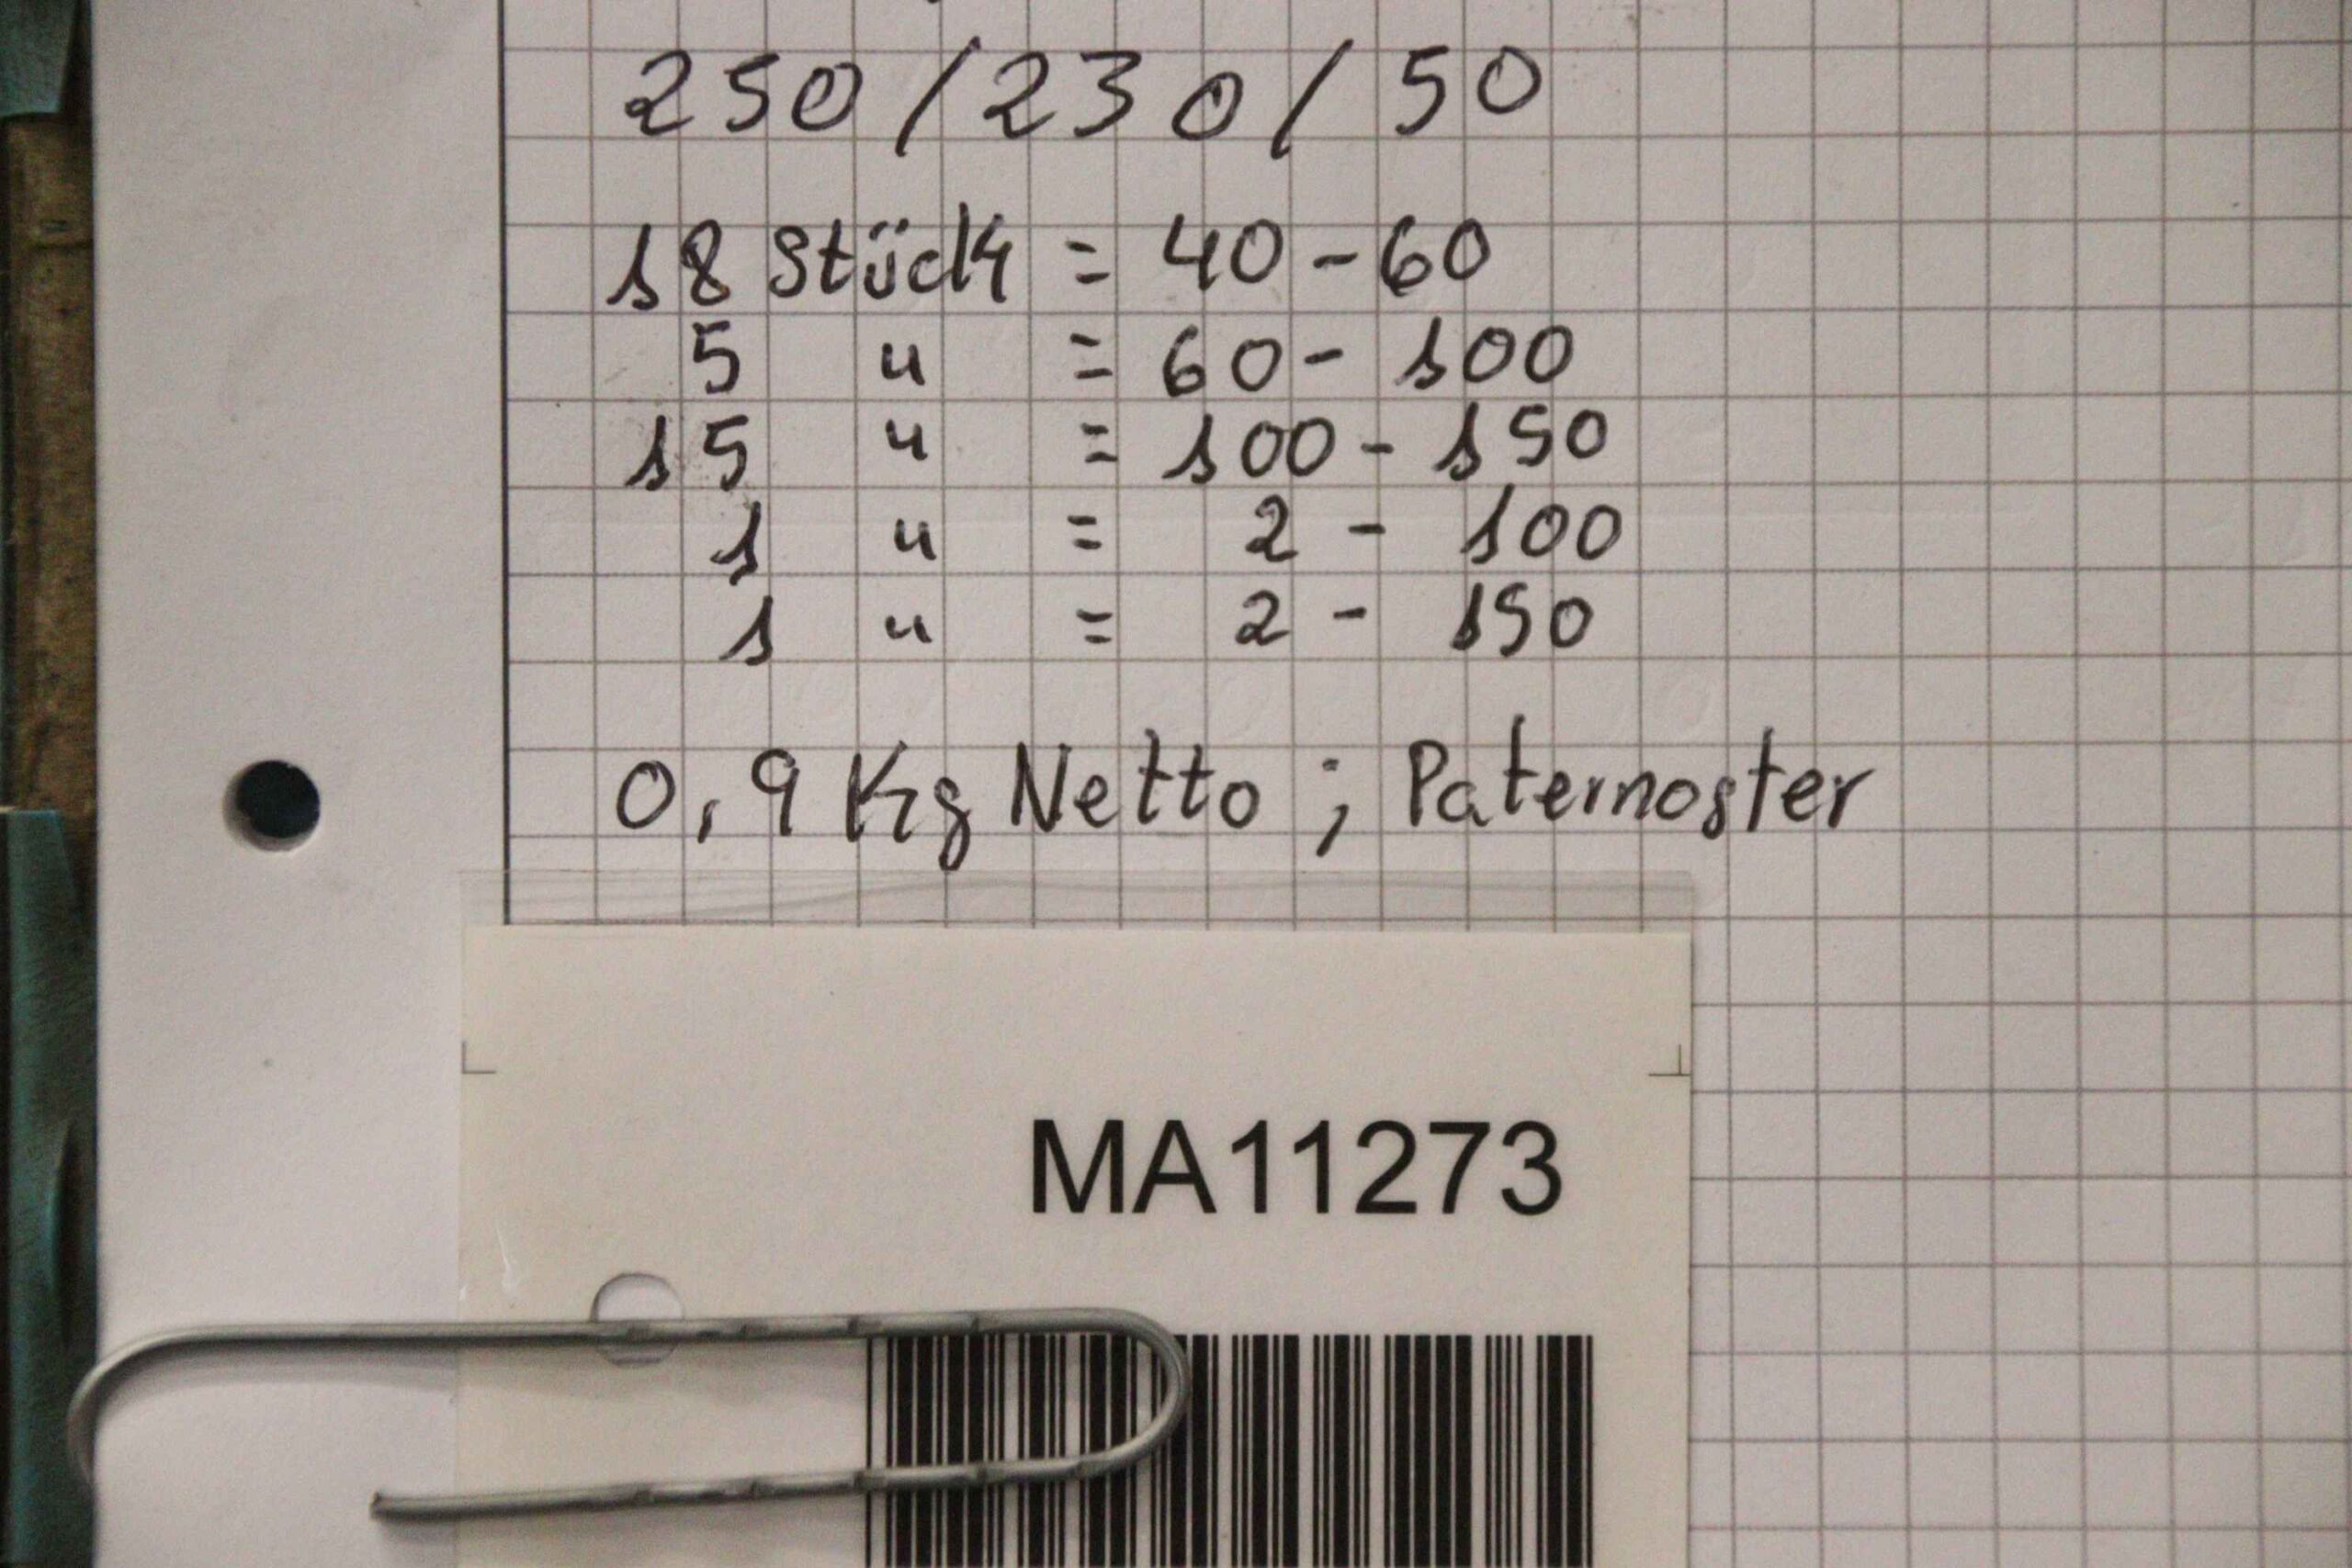 250/230/50
18 Stück = 40-60
5 " = 60-100
15 " = 100-150
1 " = 2-100
1 " = 2-150
0,9 Kg Netto ; Paternoster
MA11273